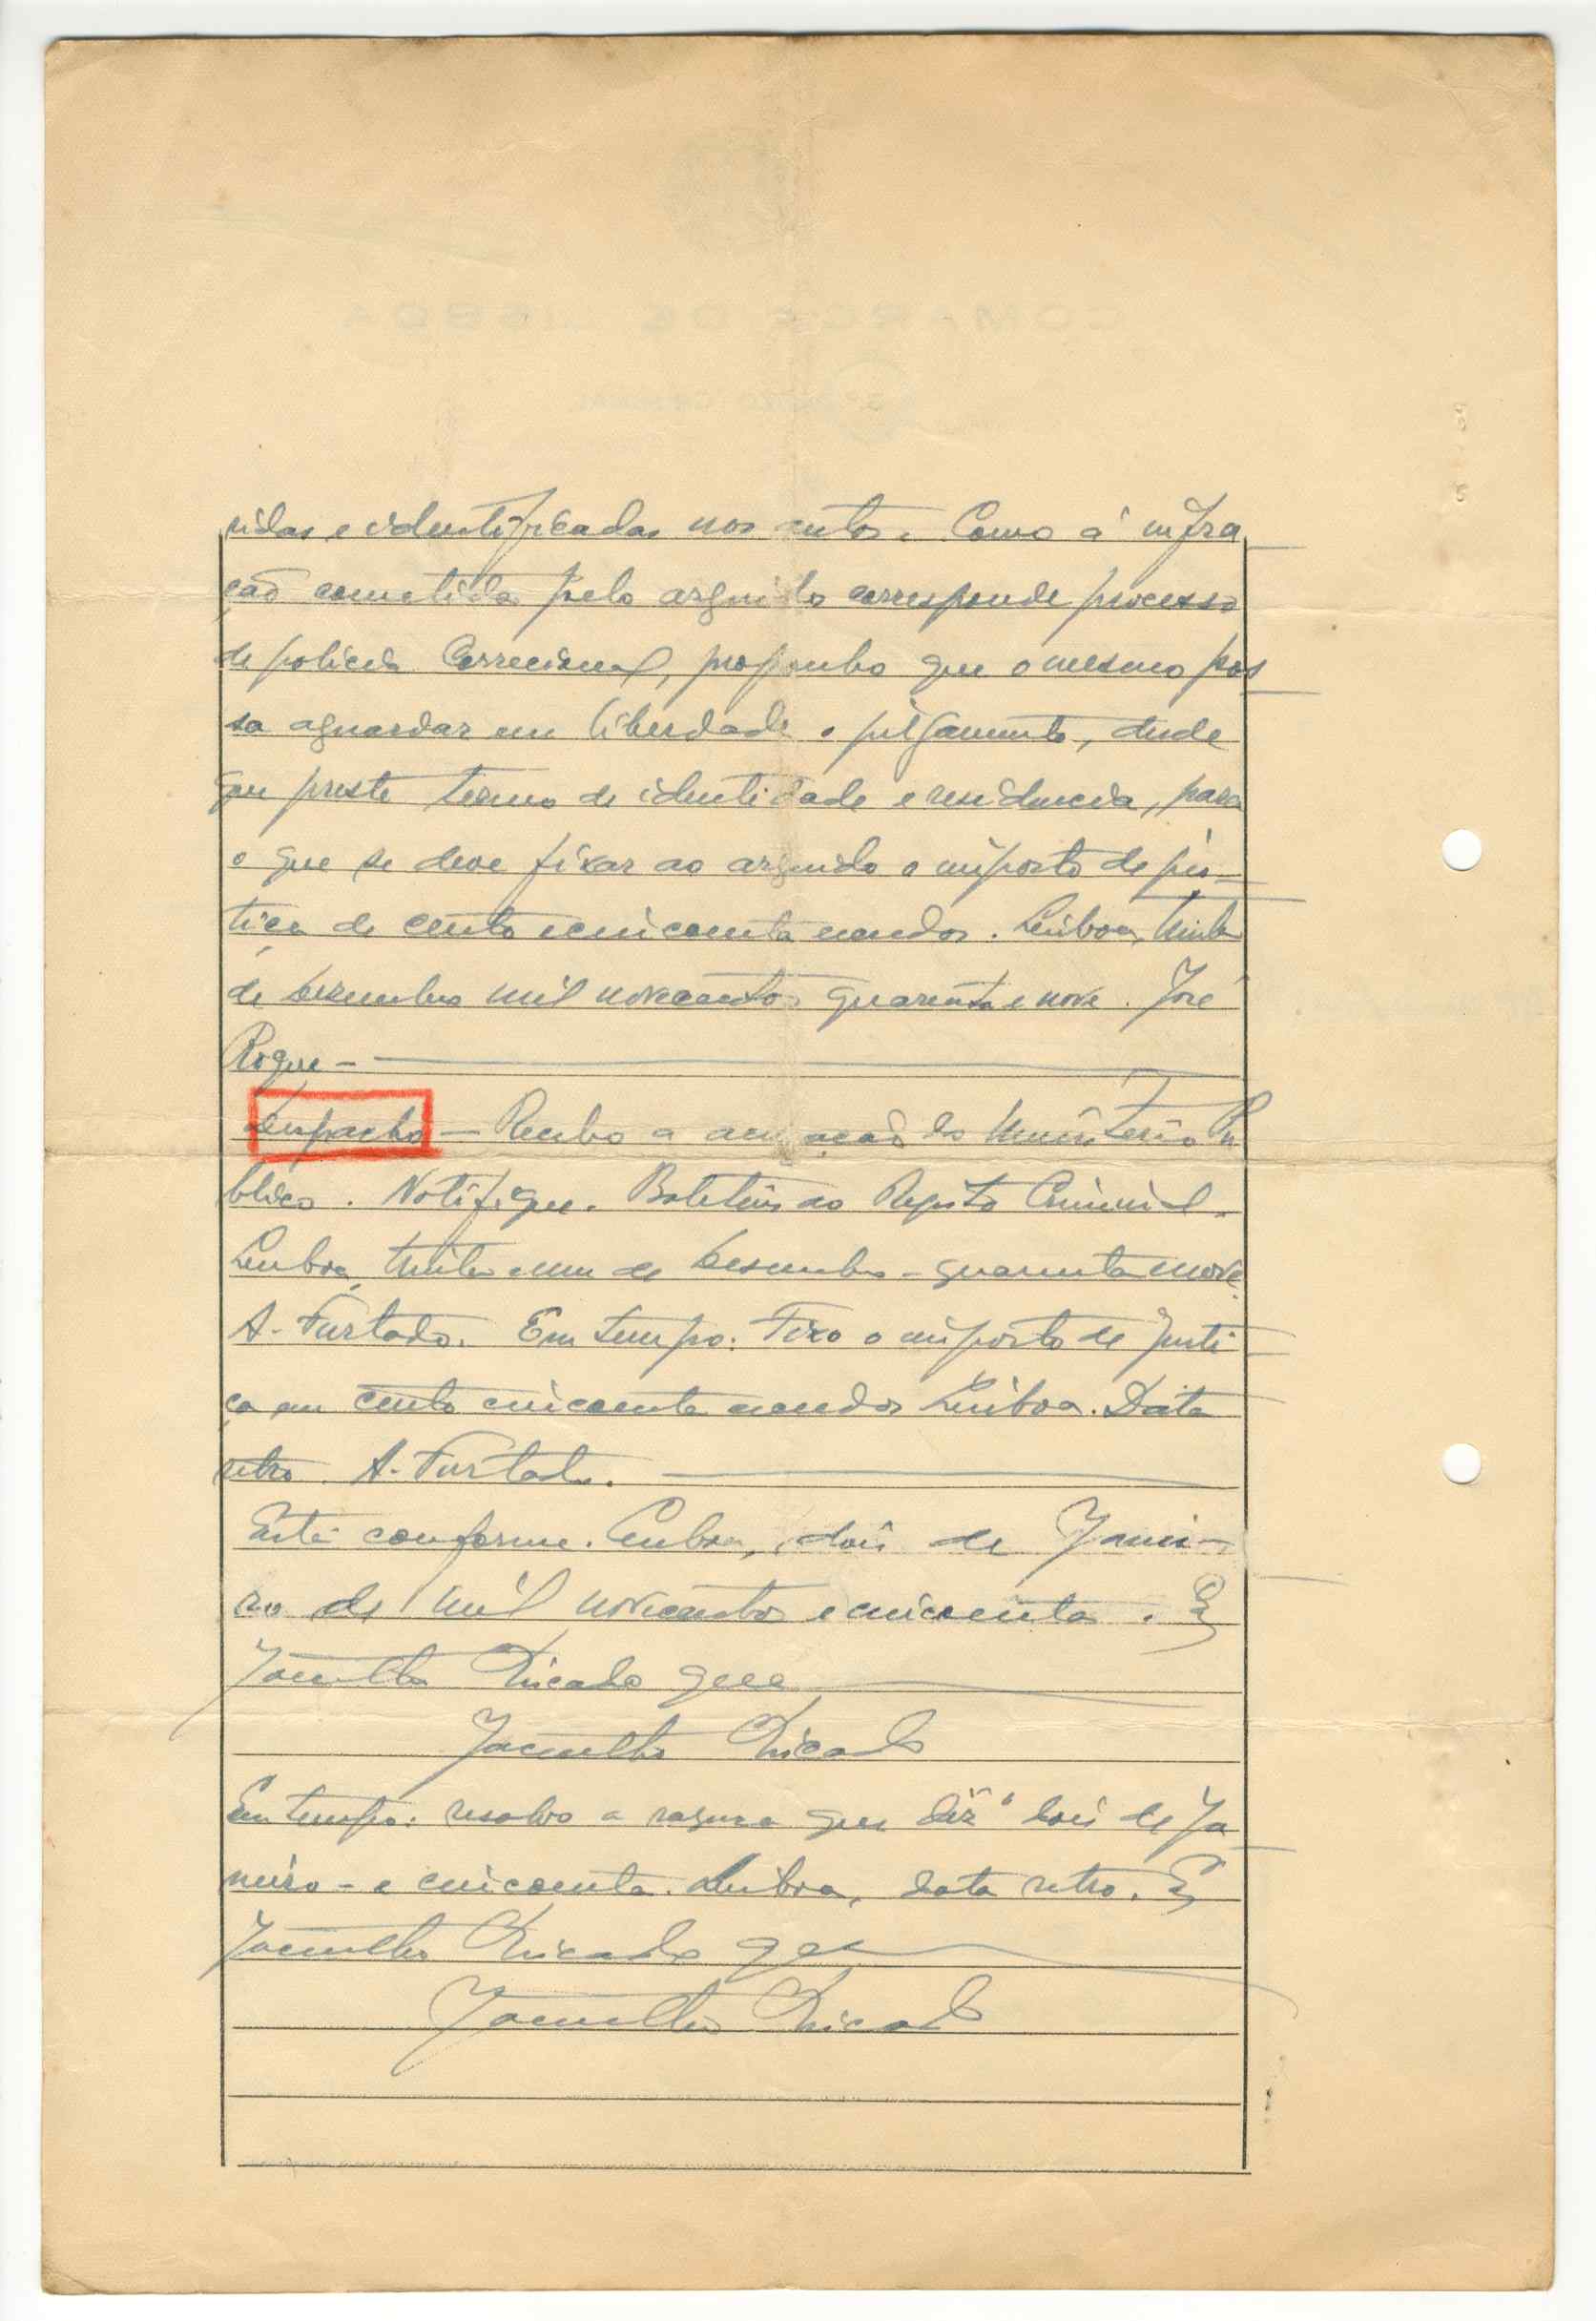 ridas e identificadas nos autos. Como á infra
ção cometida pelo arguido corresponde processo
de policia Correcional, proponho que o mesmo pos
sa aguardar em liberdade o julgamento, desde
que preste termo de identidade e residencia, para
o que se deve fixar ao arguido o imposto de jus-
tiça de cento e cincoenta escudos. Lisboa, trinta
de Dezembro mil novecentos quarenta e nove. José
Roque -
Despacho - Recebo a acusação do Ministerio Pu
blico. Notifique. Boletim ao Registo Criminal.
Lisboa, trinta e um de Dezembro - quarenta e nove.
A. Furtado. Em tempo: Fixo o imposto de Justi
ça em cento cincoenta escudos Lisboa. Data
retro. A. Furtado.
Está conforme. Lisboa, dois de Janei-
ro de mil novecentos e cincoenta. Eu
Em tempo: resalvo a rasura que diz "dois de Ja
neiro - e cincoenta. Lisboa, data retro. Eu
COMARCA DE LISBOA